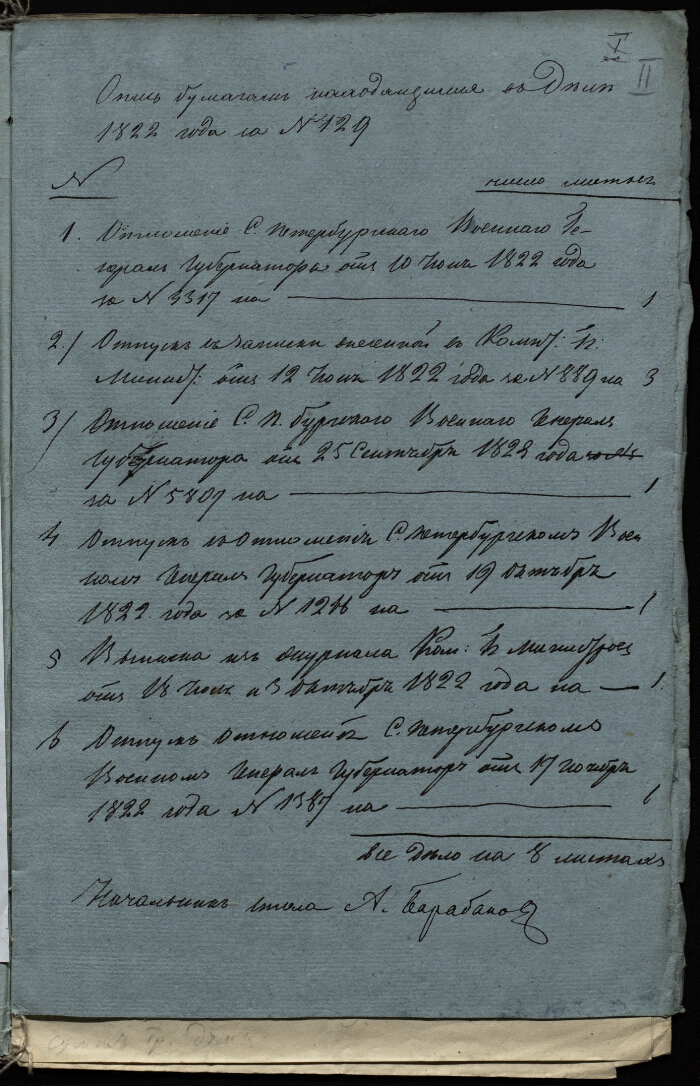 I
II
Опись бумагамъ находящимся въ Дѣлѣ
1822 года за № 129
№
число листовъ
1. Отношеніе С. Петербургскаго Военнаго Ге-
нералъ Губернатора отъ 10 Іюня 1822 года
за № 3317 на 1
2.) Отпускъ съ записки внесенной въ Комит: Гг:
Минист: отъ 12 Іюня 1822 года за № 889 на 3
3) Отношеніе С. П. бургскаго Военнаго Генералъ
Губернатора отъ 25 Сентября 1822 года
за № 5807 на 1
4 Отпускъ съ отношенія С. Петербургскому Воен
ному Генералъ Губернатору отъ 19 октября
1822 года за № 1216 на 1
5 Выписка изъ журнала Ком: Гг Министровъ
отъ 18 Іюля и 3 октября 1822 года на 1.
6 Отпускъ отношенія С. Петербургскому
Военному Генералъ Губернатору отъ 17 ноября
1822 года № 1387 на
все Дѣло на 8 листахъ
Начальникъ стола А. Барабанов